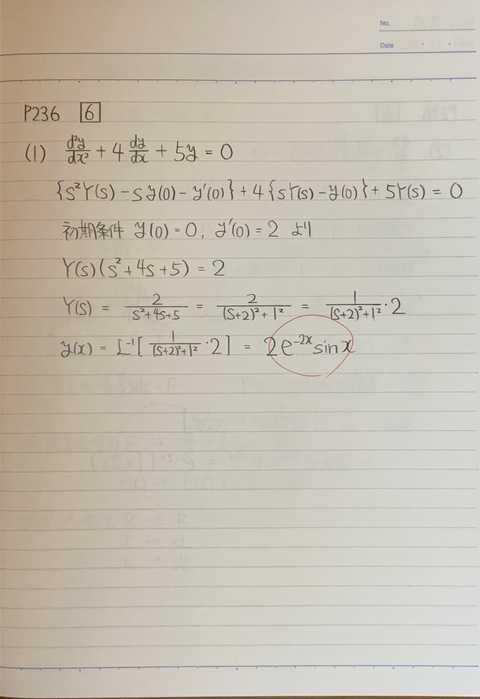 No.
Date
P236 6
(1) d²y/dx² + 4 dy/dx + 5y = 0
{s²Y(s) - sy(0) - y'(0)} + 4{sY(s) - y(0)} + 5Y(s) = 0
初期条件 y(0) = 0, y'(0) = 2 より
Y(s)(s² + 4s + 5) = 2
Y(s) = 2/(s²+4s+5) = 2/((s+2)²+1²) = 1/((s+2)²+1²) · 2
y(x) = L⁻¹[1/((s+2)²+1²) · 2] = 2e⁻²ˣ sin x